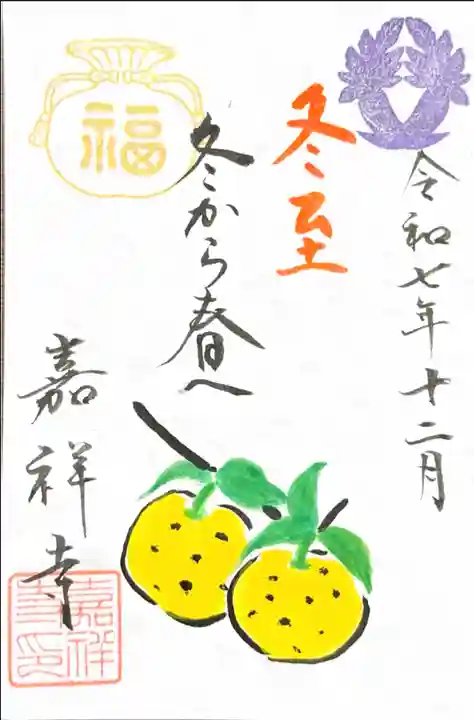 令和七年十二月
冬至
冬から春へ
福
嘉祥寺
嘉祥
寺印